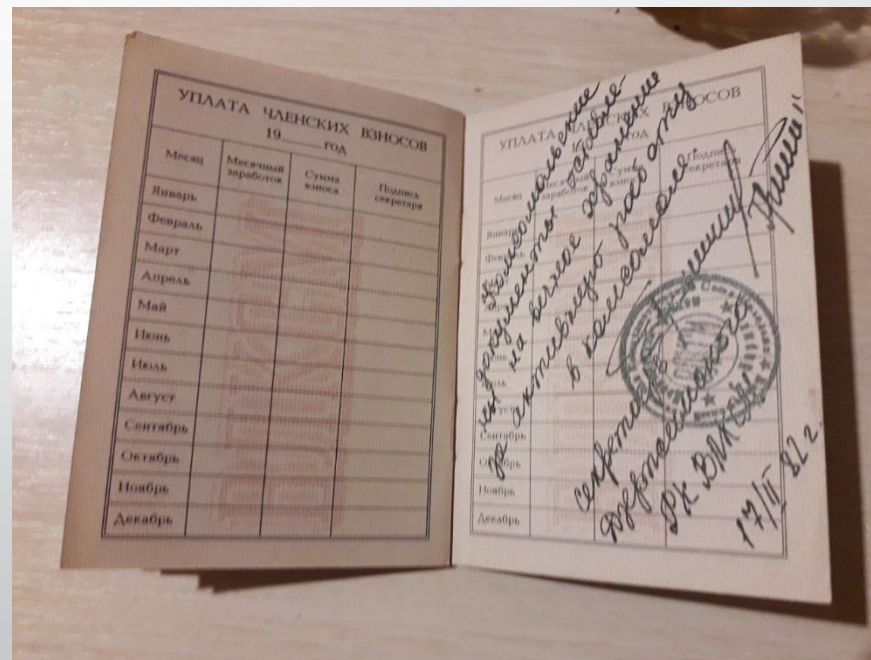 УПЛАТА ЧЛЕНСКИХ ВЗНОСОВ
19 год
Месяц
Месячный заработок
Сумма взноса
Подпись секретаря
Январь
Февраль
Март
Апрель
Май
Июнь
Июль
Август
Сентябрь
Октябрь
Ноябрь
Декабрь
ВЛКСМ
УПЛАТА ЧЛЕНСКИХ ВЗНОСОВ
год
Месяц
Месячный заработок
Сумма взноса
Подпись секретаря
Январь
Февраль
Июль
Сентябрь
Октябрь
Ноябрь
Декабрь
Комсомольские
документы оставле-
ны на вечное хранение
за активную работу
в комсомоле.
секретарь
РК ВЛКСМ
17/II 82 г.